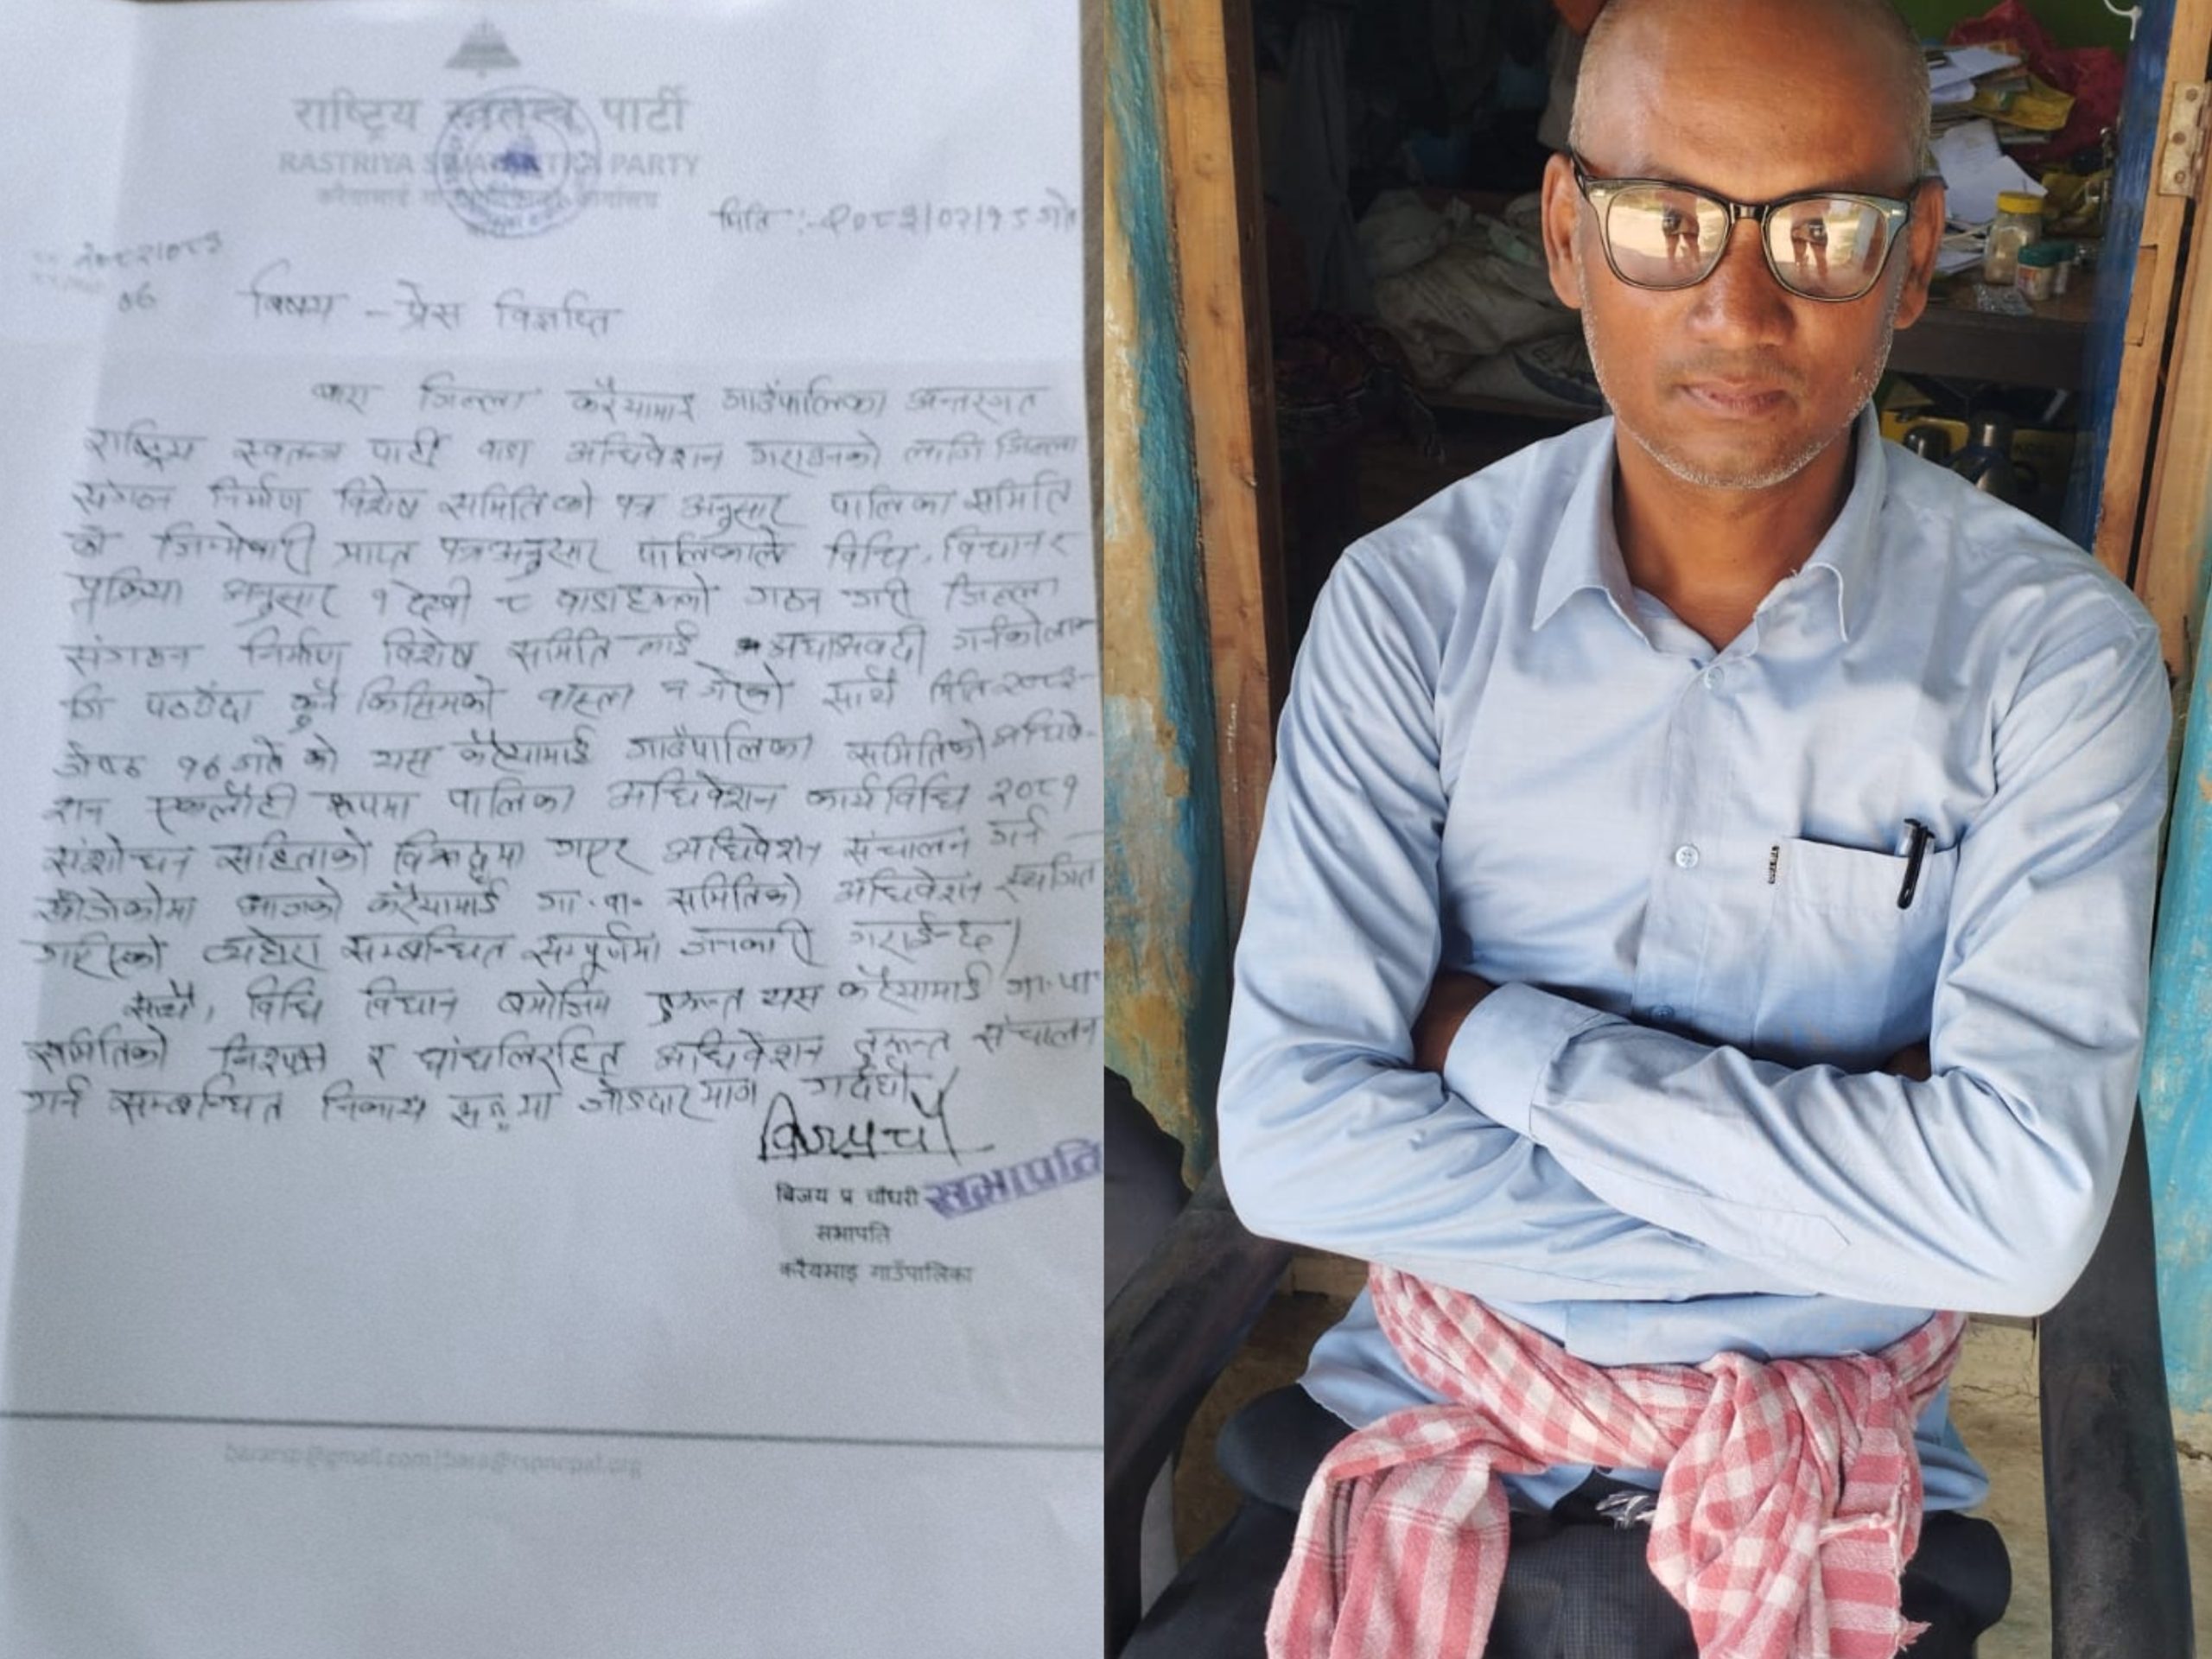 राष्ट्रिय स्वतन्त्र पार्टी
RASTRIYA SWATANTRA PARTY
मिति :- २०८३/०२/१८ गते
विषय - प्रेस विज्ञप्ति
बारा जिल्ला करैयामाई गाउँपालिका अन्तरगत
राष्ट्रिय स्वतन्त्र पार्टी वाडा अधिवेशन गराउनको लागि जिल्ला
संगठन निर्माण विशेष समितिको पत्र अनुसार पालिका समिति
को जिम्मेवारी प्राप्त पत्रअनुसार पालिकाले विधि, विधान र
प्रकिया अनुसार १ देखी ८ वाडाहरुको गठन गरी जिल्ला
संगठन निर्माण विशेष समिति लाई अद्यावदी गर्नको ला
गि पठाउँदा कुनै किसिमको वास्ता न गरेको साथै मिति २०८३
जेष्ठ १७ गते को यस करैयामाई गाउँपालिका समितिको अधिवे-
शन एकलौटी रूपमा पालिका अधिवेशन कार्यविधि २०८१
संशोधन सहिताको विरूद्धमा गएर अधिवेशन संचालन गर्न
खोजेकोमा आजको करैयामाई गा.पा. समितिको अधिवेशन स्थगित
गरिएको व्यहोरा सम्बन्धित सम्पूर्णमा जानकारी गराईन्छ।
साथै, विधि विधान बमोजिम यस करैयामाई गा.पा
समितिको निश्पक्ष र धांधलिरहित अधिवेशन तुरून्त संचालन
गर्न सम्बन्धित निकाय जोडदार माग गर्दछौ।
विजय प्र चौधरी सभापति
सभापति
करैयमाइ गाउँपालिका
bararsp@gmail.com|bara@rspnepal.org